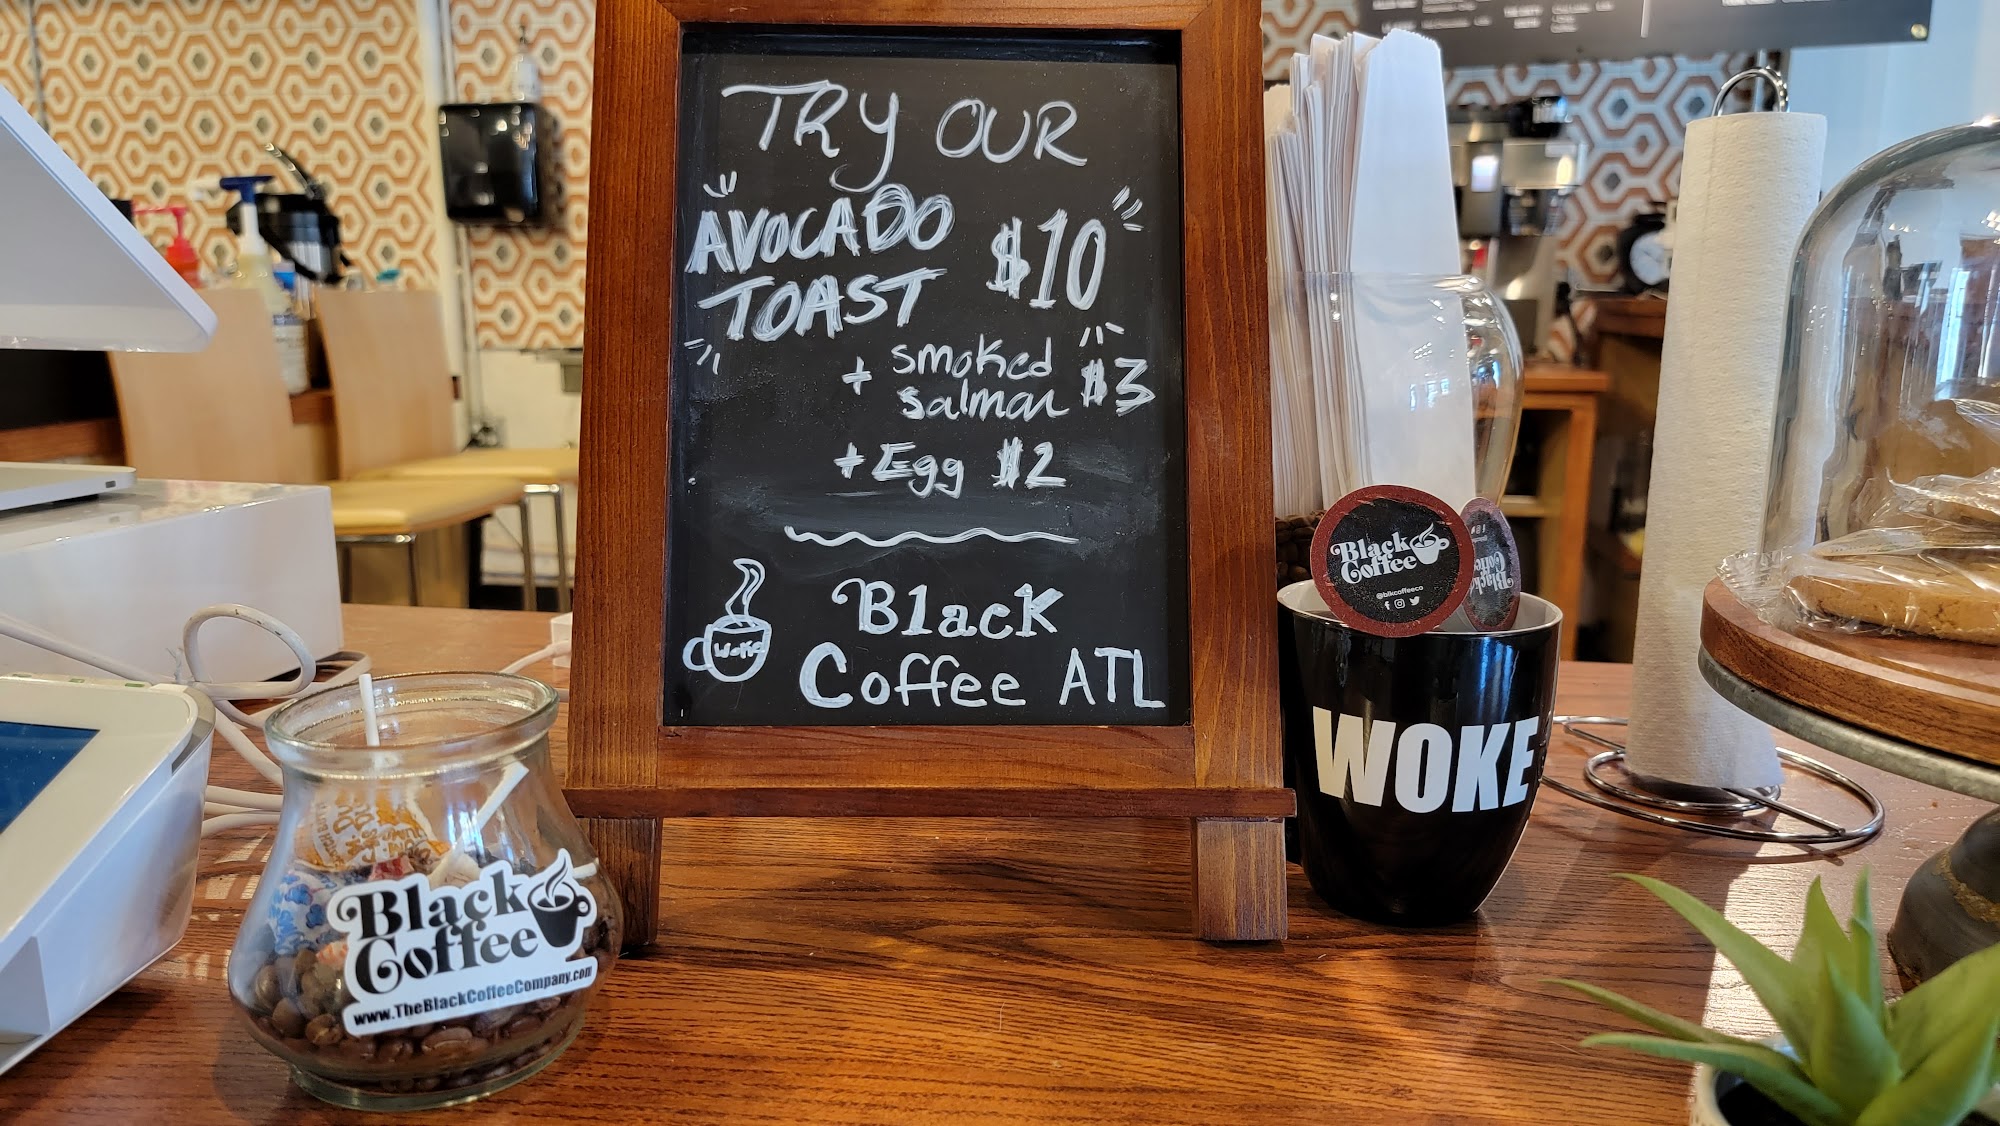 TRY OUR
AVOCADO $10
TOAST
+ smoked $3
salmon
+ Egg $2
Woke
Black
Coffee ATL
Black
Coffee
@blkcoffeeco
Black
Coffee
WOKE
Black
Coffee
www.TheBlackCoffeeCompany.com